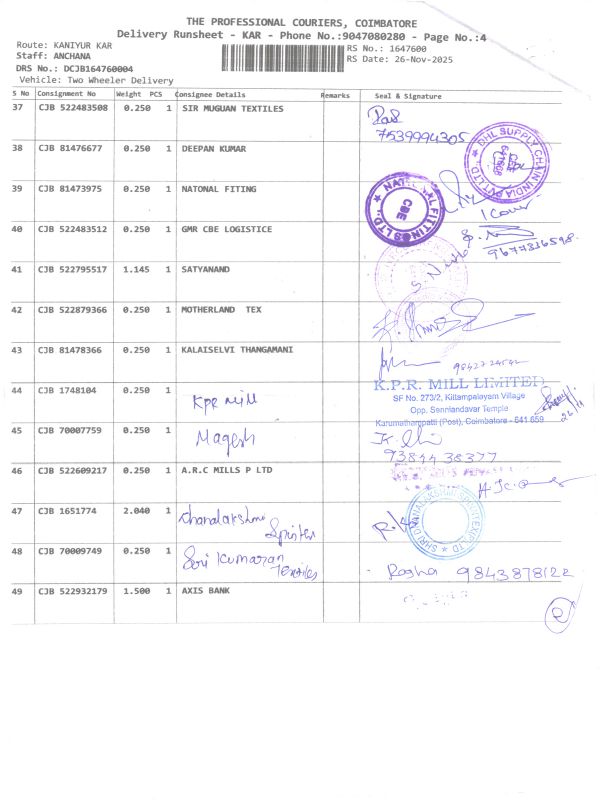 THE PROFESSIONAL COURIERS, COIMBATORE
Delivery Runsheet - KAR - Phone No.:9047080280 - Page No.:4
Route: KANIYUR KAR
RS No.: 1647600
Staff: ANCHANA
RS Date: 26-Nov-2025
DRS No.: DCJB164760004
Vehicle: Two Wheeler Delivery
S No Consignment No Weight PCS Consignee Details Remarks Seal & Signature
37 CJB 522483508 0.250 1 SIR MUGUAN TEXTILES
7539994305
38 CJB 81476677 0.250 1 DEEPAN KUMAR
DHL SUPPLY CHAIN INDIA PVT LTD
39 CJB 81473975 0.250 1 NATONAL FITING
NATIONAL FITTINGS LTD
CBE
40 CJB 522483512 0.250 1 GMR CBE LOGISTICE
9677816598
41 CJB 522795517 1.145 1 SATYANAND
42 CJB 522879366 0.250 1 MOTHERLAND TEX
43 CJB 81478366 0.250 1 KALAISELVI THANGAMANI
9842724542
44 CJB 1748104 0.250 1 KPR Mill
K.P.R. MILL LIMITED
SF No. 273/2, Kittampalayam Village
Opp. Sennlandavar Temple
Karumathampatti (Post), Coimbatore - 641 659
45 CJB 70007759 0.250 1 Magesh
9384438377
46 CJB 522609217 0.250 1 A.R.C MILLS P LTD
47 CJB 1651774 2.040 1 Dhanalakshmi
48 CJB 70009749 0.250 1 Sri Kumaran
Textiles
Rogha 9843878122
49 CJB 522932179 1.500 1 AXIS BANK